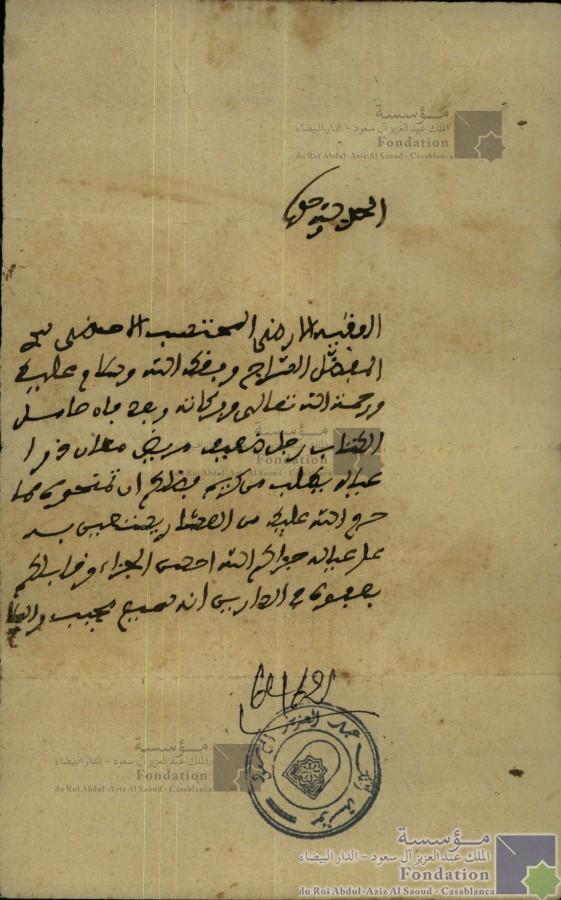 مؤسسة
الملك عبد العزيز آل سعود - الدار البيضاء
Fondation
du Roi Abdul-Aziz Al Saoud - Casablanca
الحمد لله وحده
الفقيه الارضى المحتسب الاحضى سي
الفراج وفقك الله وسلام عليك
ورحمة الله تعالى وبركاته وبعد فإن حامل
الكتاب رجل ضعيف مريض
عياله يطلب من كريم فضلكم ان تمنحوه مما
الله عليك من يستعين به
على عياله جزاكم الله احسن الجزاء وقابلكم
بعفوه في الدارين انه سميع مجيب والسلام
مؤسسة الملك عبد العزيز آل سعود
مؤسسة
الملك عبد العزيز آل سعود - الدار البيضاء
Fondation
du Roi Abdul-Aziz Al Saoud - Casablanca
مؤسسة
الملك عبد العزيز آل سعود - الدار البيضاء
Fondation
du Roi Abdul-Aziz Al Saoud - Casablanca